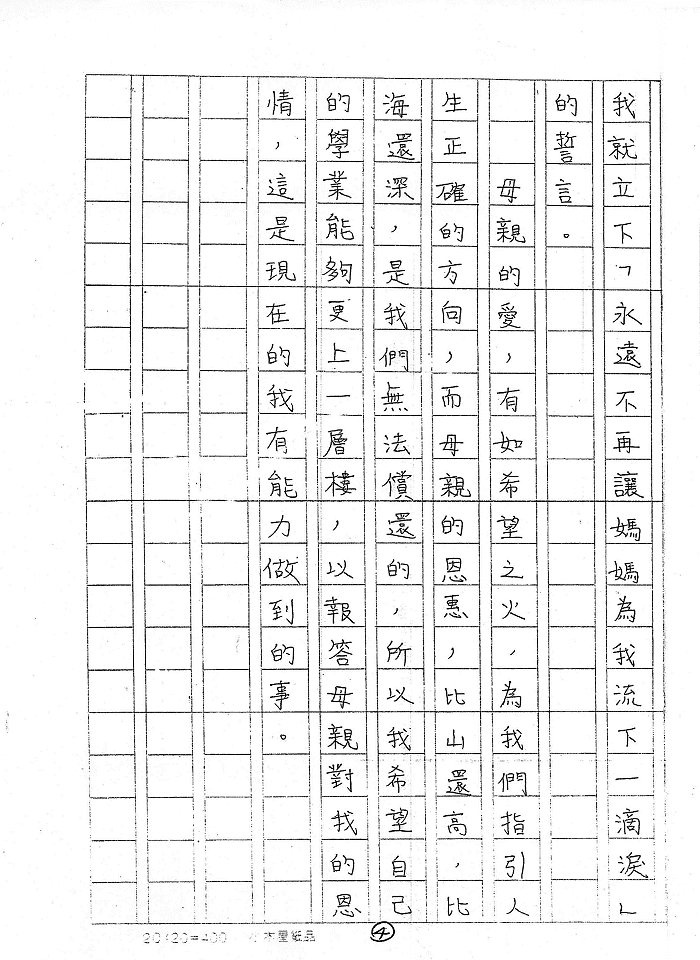 我就立下「永遠不再讓媽媽為我流下一滴淚」
的誓言。
母親的愛，有如希望之火，為我們指引人
生正確的方向，而母親的恩惠，比山還高，比
海還深，是我們無法償還的，所以我希望自己
的學業能夠更上一層樓，以報答母親對我的恩
情，這是現在的我有能力做到的事。
20×20=400
④